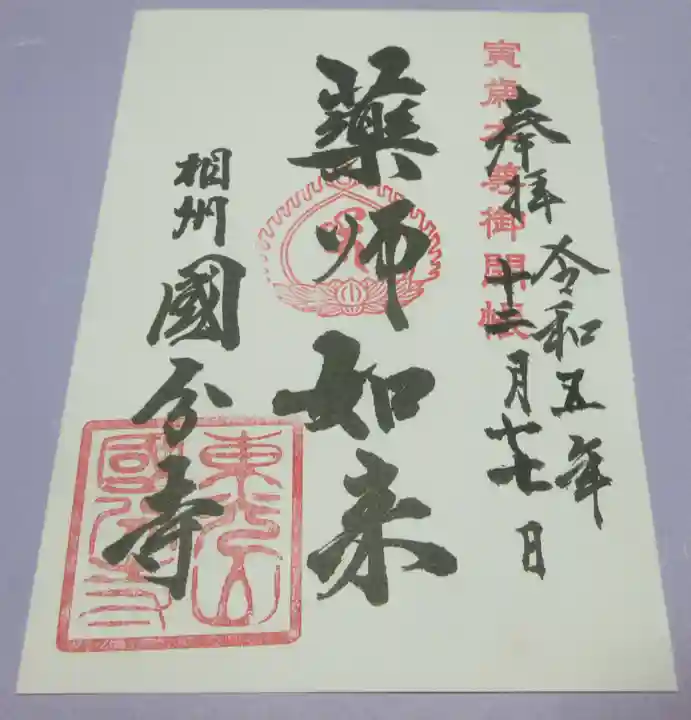 寅歳本尊御開帳
奉拝
令和五年
十二月十七日
薬師如来
相州
國分寺
東光山
國分寺